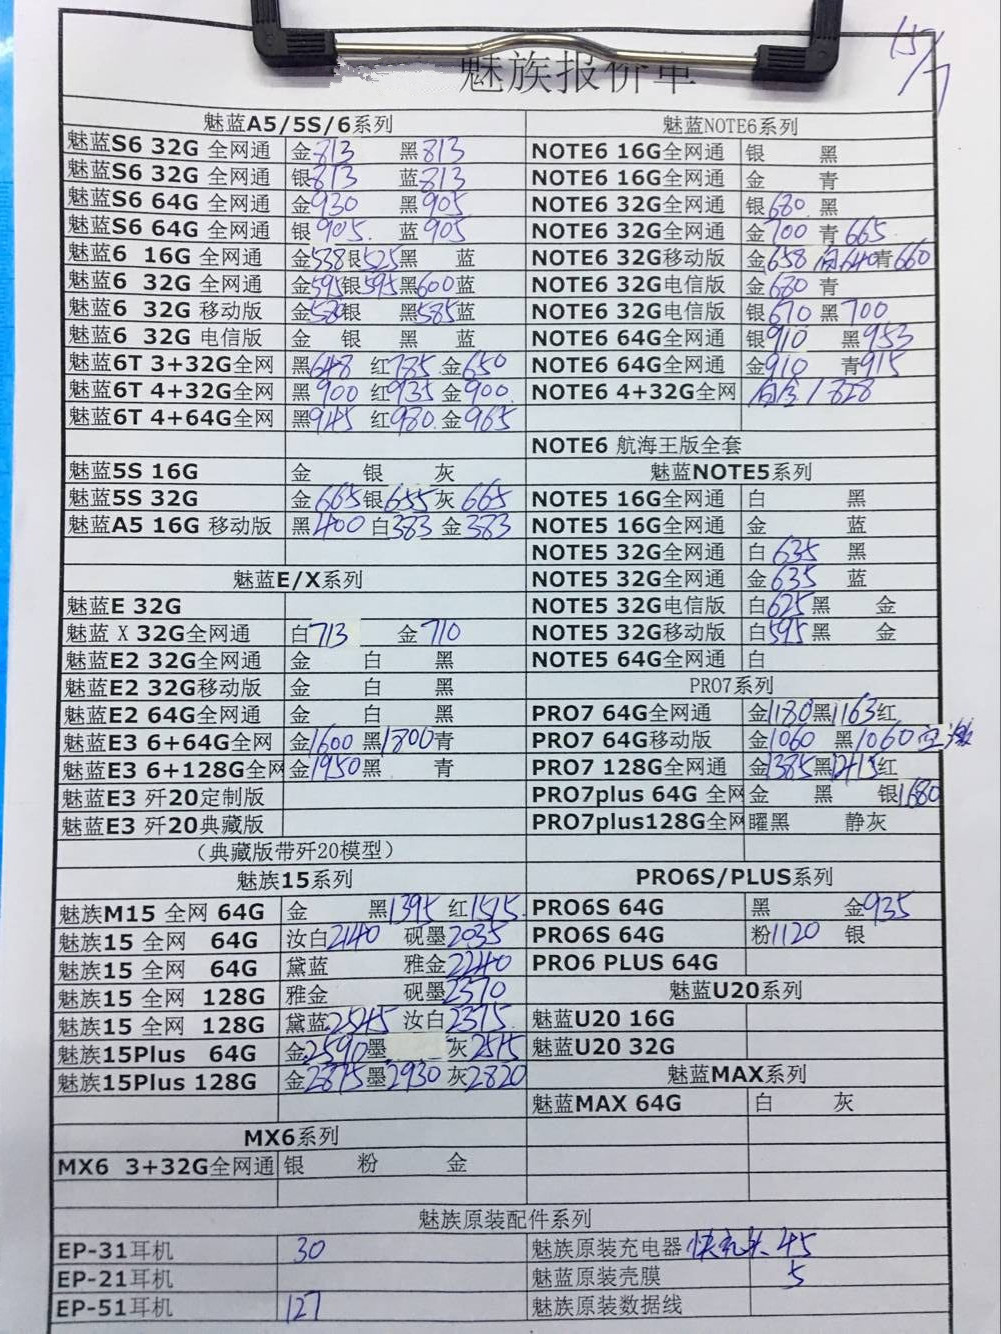 魅族报价单
15/7
魅蓝A5/5S/6系列
魅蓝S6 32G 全网通 金813 黑813
魅蓝S6 32G 全网通 银813 蓝813
魅蓝S6 64G 全网通 金930 黑905
魅蓝S6 64G 全网通 银905 蓝905
魅蓝6 16G 全网通 金538银525黑 蓝
魅蓝6 32G 全网通 金595银595黑600蓝
魅蓝6 32G 移动版 金 银 黑585蓝
魅蓝6 32G 电信版 金 银 黑 蓝
魅蓝6T 3+32G全网 黑648 红 金650
魅蓝6T 4+32G全网 黑900 红935 金900
魅蓝6T 4+64G全网 黑945 红980 金965
魅蓝5S 16G 金 银 灰
魅蓝5S 32G 金665银655灰665
魅蓝A5 16G 移动版 黑400 白383 金383
魅蓝E/X系列
魅蓝E 32G
魅蓝 X 32G全网通 白713 金710
魅蓝E2 32G全网通 金 白 黑
魅蓝E2 32G移动版 金 白 黑
魅蓝E2 64G全网通 金 白 黑
魅蓝E3 6+64G全网 金1600 黑1800青
魅蓝E3 6+128G全网 金1950黑 青
魅蓝E3 歼20定制版
魅蓝E3 歼20典藏版
（典藏版带歼20模型）
魅族15系列
魅族M15 全网 64G 金 黑1395 红1515
魅族15 全网 64G 汝白2140 砚墨2035
魅族15 全网 64G 黛蓝 雅金2240
魅族15 全网 128G 雅金 砚墨2370
魅族15 全网 128G 黛蓝2545 汝白2375
魅族15Plus 64G 金2590墨 灰2515
魅族15Plus 128G 金2875墨2930灰2820
MX6系列
MX6 3+32G全网通 银 粉 金
魅蓝NOTE6系列
NOTE6 16G全网通 银 黑
NOTE6 16G全网通 金 青
NOTE6 32G全网通 银680 黑
NOTE6 32G全网通 金700 青665
NOTE6 32G移动版 金658 640青660
NOTE6 32G电信版 金680 青
NOTE6 32G电信版 银670 黑700
NOTE6 64G全网通 银910 黑953
NOTE6 64G全网通 金910 青915
NOTE6 4+32G全网 828
NOTE6 航海王版全套
魅蓝NOTE5系列
NOTE5 16G全网通 白 黑
NOTE5 16G全网通 金 蓝
NOTE5 32G全网通 白635 黑
NOTE5 32G全网通 金635 蓝
NOTE5 32G电信版 白625黑 金
NOTE5 32G移动版 白595黑 金
NOTE5 64G全网通 白
PRO7系列
PRO7 64G全网通 金1180黑1163红
PRO7 64G移动版 金1060 黑1060
PRO7 128G全网通 金1385黑1415红
PRO7plus 64G 全网 金 黑 银1680
PRO7plus128G全网 曜黑 静灰
PRO6S/PLUS系列
PRO6S 64G 黑 金935
PRO6S 64G 粉1120 银
PRO6 PLUS 64G
魅蓝U20系列
魅蓝U20 16G
魅蓝U20 32G
魅蓝MAX系列
魅蓝MAX 64G 白 灰
魅族原装配件系列
EP-31耳机 30 魅族原装充电器 快充头 45
EP-21耳机 魅蓝原装壳膜 5
EP-51耳机 127 魅族原装数据线